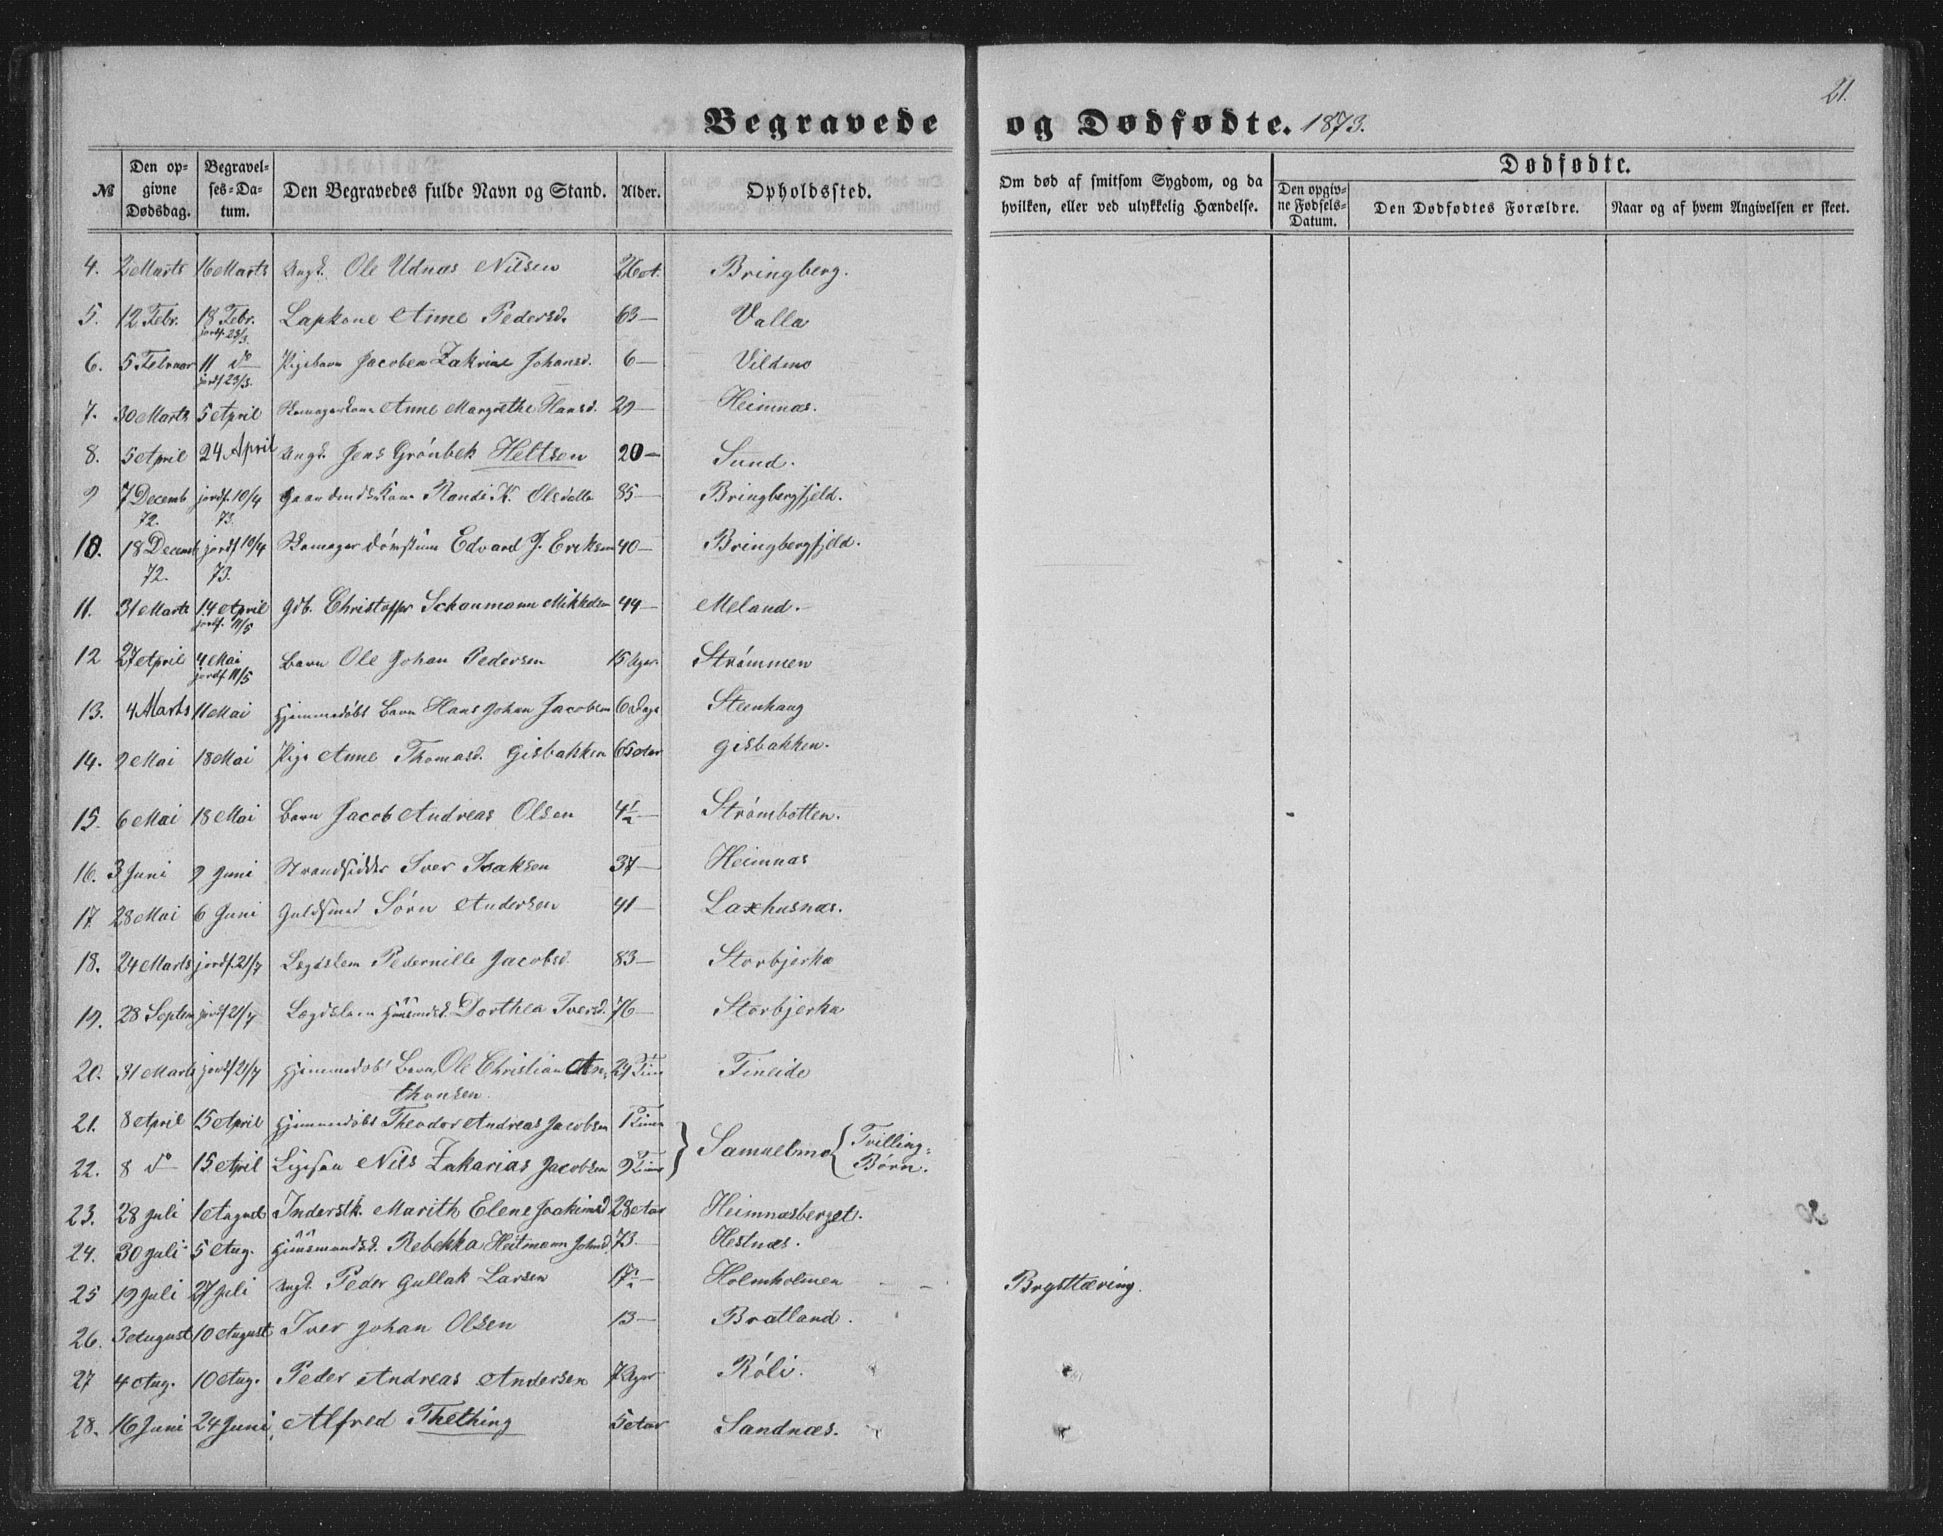 21.
Begravede og Dødfødte. 1873.
№ Den op-givne Dødsdag. Begravel-ses-Da-tum. Den Begravedes fulde Navn og Stand. Alder. Opholdssted. Om død af smitsom Sygdom, og da hvilken, eller ved ulykkelig Hændelse. Dødfødte. Den opgiv-ne Fødsels-Datum. Den Dødfødtes Forældre. Naar og af hvem Angivelsen er skeet.
4. 2 Marts 16 Marts Ungk. Ole Udnæs Nilsen 26 Bringberg.
5. 12 Febr. 18 Febr. Lapkone Anne Pedersd. 63 — Valla
jordf. 23/3.
6. 5 Februar 11 do Pigebarn Jacobea Zakrine Johansd. 6 — Vildmo
jordf 23/3.
7. 30 Marts 5 April Anne Margrethe Hansd. 29 — Heimnæs.
8. 5 April 24 April Ungk. Jens Grönbek Heltsen 20 — Sund.
9 7 Decemb jordf. 10/4 Randi K. Olsdatter 85 — Bringbergfjeld.
72. 73.
10. 18 Decemb jordf 10/4 Edvard J. Eriksen 40 — Bringbergfjeld.
72. 73.
11. 31 Marts 14 April Gdb. Christoffer Schanmann Mikkelsen 44 — Meland.
jordf. 11/5
12 27 April 4 Mai Barn Ole Johan Pedersen 15 Uger. Strömmen
jordf 11/5
13. 4 Marts 11 Mai Hjemmedöbt Barn Hans Johan Jacobsen 6 Dage Steenhaug
14. 9 Mai 18 Mai Pige Anne Thomasd. Gisbakken 65 Aar Gisbakken.
15. 6 Mai 18 Mai Barn Jacob Andreas Olsen 4½ — Strömbotten.
16. 3 Juni 9 Juni Strandsidder Iver Isaksen 37 — Heimnæs
17. 28 Mai 6 Juni Guldsmed Sörn Andersen 41 — Laxhusnæs.
18. 24 Marts jordf. 21/7 Legdslem Pedernille Jacobsd 83 — Storbjerka
19. 28 Septem jordf 21/7 Lægdslem Huusmdsk. Dorthea Iversd. 76 — Storbjerka
20. 31 Marts jordf 21/7 Hjemmedöbt Barn Ole Christian An- 24 Timer Fineide
thonsen.
21. 8 April 15 April Hjemmedöbt Theodor Andreas Jacobsen 1 Time } Samuelmo { Tvilling-
22. 8 do 15 April Ligesaa Nils Zakarias Jacobsen 9 Timer Börn.
23. 28 Juli 1 August Inderstk. Marith Elene Joakimsd 28 Aar Heimnæsberget.
24. 30 Juli 5 Aug. Huusmandsk. Rebekka Heitmann Johnsd 73. — Hestnæs.
25 19 Juli 27 Juli Ungk. Peder Gullak Larsen 17½ — Holmholmen Brysttæring.
26. 3 August 10 August Iver Johan Olsen 13 — Bratland.
27 4 Aug. 10 Aug. Peder Andreas Andersen 7 Uger Röli.
28. 16 Juni 24 Juni Alfred Thething 5 Aar Sandnæs.